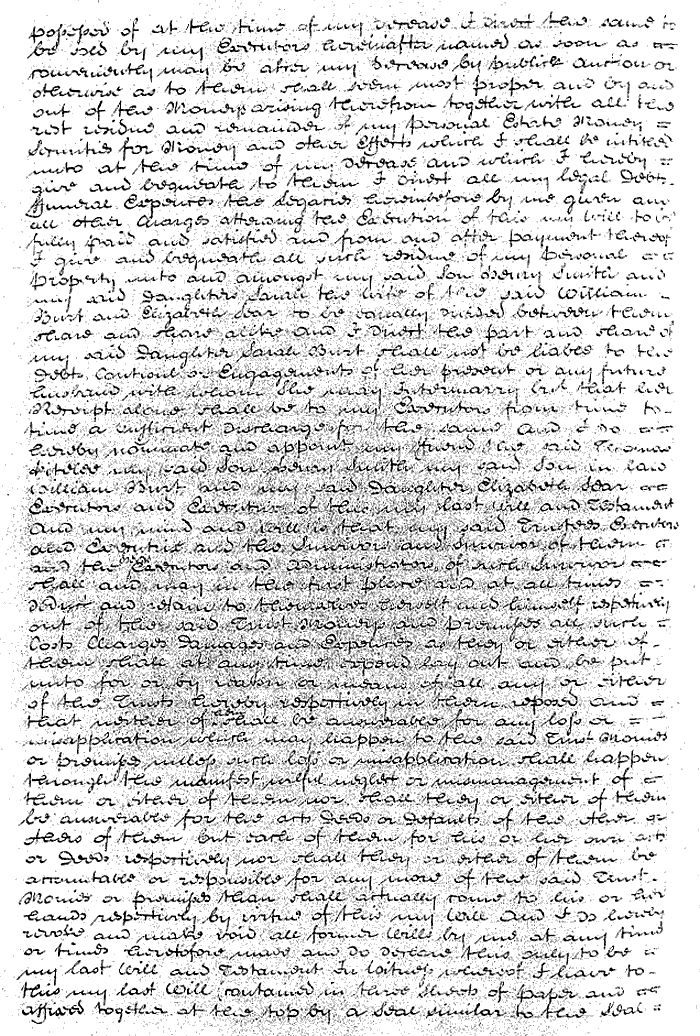 possessed of at the time of my Decease I Direct the same to
be sold by my Executors hereinafter named as soon as =
conveniently may be after my Decease by publick Auction or
otherwise as to them shall seem most proper and by and
out of the Moneys arising therefrom together with all the
rest residue and remainder of my personal Estate Money =
Securities for Money and other Effects which I shall be intitled
unto at the time of my Decease and which I hereby =
give and bequeath to them I Direct all my legal Debts
ffuneral Expences the Legacies hereinbefore by me given and
all other Charges attending the Execution of this my Will to be
fully paid and satisfied and from and after payment thereof
I give and bequeath all such residue of my personal =
Property unto and amongst my said Son Henry Smith and
my said Daughters Sarah the wife of the said William -
Burt and Elizabeth Sear to be equally Divided between them
share and share alike and I Direct the part and share of
my said Daughter Sarah Burt shall not be liable to the
Debts Controul or Engagements of her present or any future
husband with whom she may Intermarry but that her
Receipt alone shall be to my Executors from time to-
time a sufficient Discharge for the same And I do =
hereby nominate and appoint my ffriend the said Thomas
my said Son Henry Smith my said Son in law
William Burt and my said Daughter Elizabeth Sear
Executors and Executrix of this my last Will and Testament
And my mind and will is that my said Trustees Executors
and Executrix and the Survivors and Survivor of them =
and the Executors and Administrators of such Survivor =
shall and may in the first place and at all times =
Deduct and retain to themselves herself and himself respectively
out of the said Trust Moneys and premises all such =
Costs Charges Damages and Expences as they or either of-
them shall at any time expend lay out and be put-
unto for or by reason or means of all any or either
of the Trusts hereby respectively in them reposed and =
that neither of shall be answerable for any loss or =
misapplication which may happen to the said Trust Monies
or premises unless such loss or misapplication shall happen
through the manifest wilful neglect or mismanagement of =
them or either of them nor shall they or either of them
be answerable for the acts Deeds or Defaults of the other or
others of them but each of them for his or her own acts
or Deeds respectively nor shall they or either of them be
accountable or responsible for any more of the said Trust-
Monies or premises than shall actually come to his or her
hands respectively by virtue of this my Will And I do hereby
revoke and make void all former Wills by me at any time
or times heretofore made and do declare this only to be =
my last Will and Testament In Witness whereof I have to-
this my last Will (contained in three Sheets of paper and =
affixed together at the top by a Seal similar to the Seal =